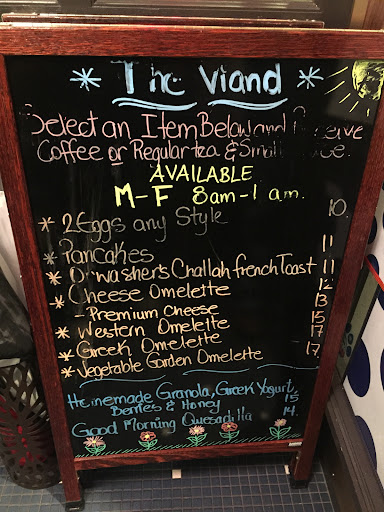 * The Viand *
Select an Item Below and
Coffee or Regular tea & Small
AVAILABLE
M-F 8am-1 am.
* 2 Eggs any Style 10.
* Pancakes 11
* Orwasher's Challah french Toast 11
* Cheese Omelette 12
- Premium Cheese 13
* Western Omelette 15
* Greek Omelette 17
* Vegetable Garden Omelette 17
Homemade Granola, Greek Yogurt, 15
Berries & Honey
Good Morning Quesadilla 14.